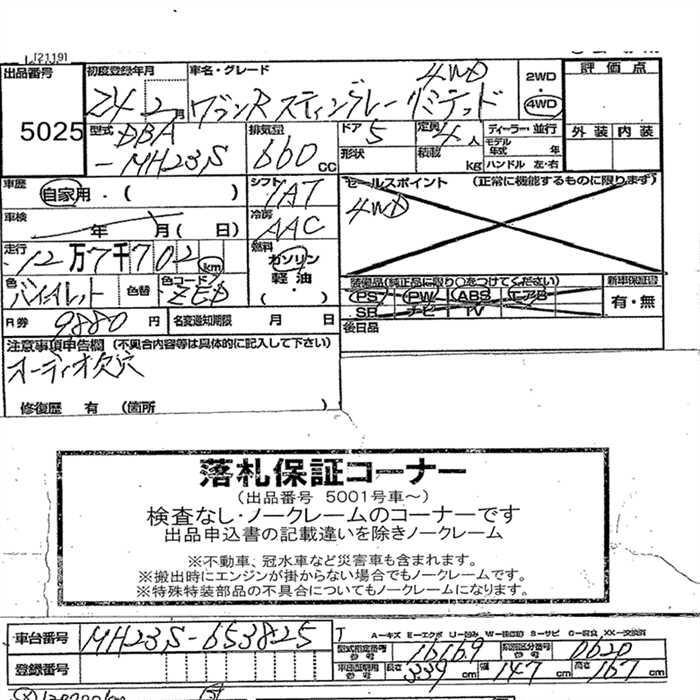 [2119]
出品番号 5025
初度登録年月 24 2月
車名・グレード 4WD
ワゴンR スティングレー リミテッド
2WD・4WD
評価点
外装 内装
型式 DBA-MH23S
排気量 660cc
ドア 5
形状
定員 4人
積載 kg
ディーラー・並行
モデル年式 年
ハンドル 左・右
車歴 自家用・( )
シフト IAT
セールスポイント (正常に機能するものに限ります)
4WD
車検 年 月(日)
冷房 AAC
走行 12万7千702km
燃料 ガソリン・軽油・( )
色 バイオレット 色替
色コード ZED
装備品(純正品に限り○をつけてください)
PS PW ABS エアB
SR ナビ TV
新車保証書 有・無
R券 9880円
名変通知期限 月 日
後日品
注意事項申告欄 (不具合内容等は具体的に記入して下さい)
オーディオ欠穴
修復歴 有 (箇所 )
落札保証コーナー
(出品番号 5001号車~)
検査なし・ノークレームのコーナーです
出品申込書の記載違いを除きノークレーム
※不動車、冠水車など災害車も含まれます。
※搬出時にエンジンが掛からない場合でもノークレームです。
※特殊特装部品の不具合についてもノークレームになります。
車台番号 MH23S-653825
A-キズ E-エクボ U-凹み W-補修跡 S-サビ C-腐食 XX-交換済
型式指定番号 16169 類別区分番号 0620
登録番号
長さ 339cm 幅 147cm 高さ 167cm